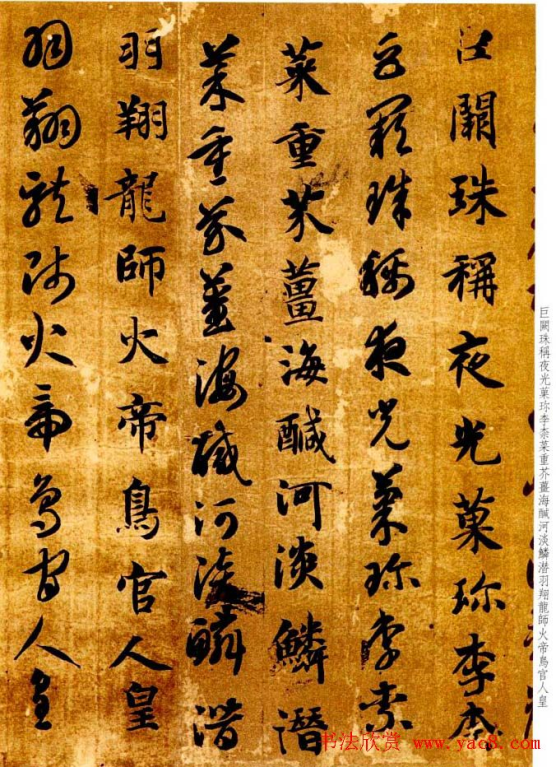 巨闕珠稱夜光菓珍李柰
巨闕珠稱夜光菓珍李柰
菜重芥薑海鹹河淡鱗潛
菜重芥薑海鹹河淡鱗潛
羽翔龍師火帝鳥官人皇
羽翔龍師火帝鳥官人皇
巨闕珠稱夜光菓珍李柰菜重芥薑海鹹河淡鱗潜羽翔龍師火帝鳥官人皇
书法欣赏 www.yac8.com